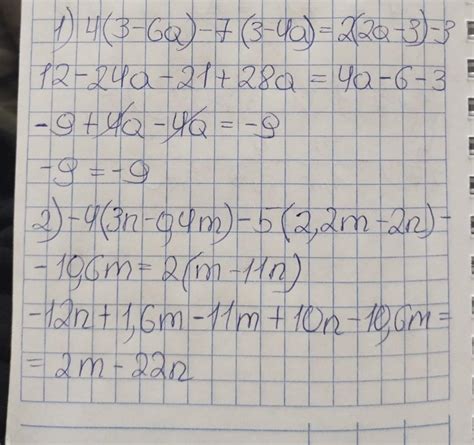 1) 4(3-6a)-7(3-4a)=2(2a-3)-3
12-24a-21+28a=4a-6-3
-9+4a-4a=-9
-9=-9
2)-4(3n-0,4m)-5(2,2m-2n)-
-10,6m=2(m-11n)
-12n+1,6m-11m+10n-10,6m=
=2m-22n